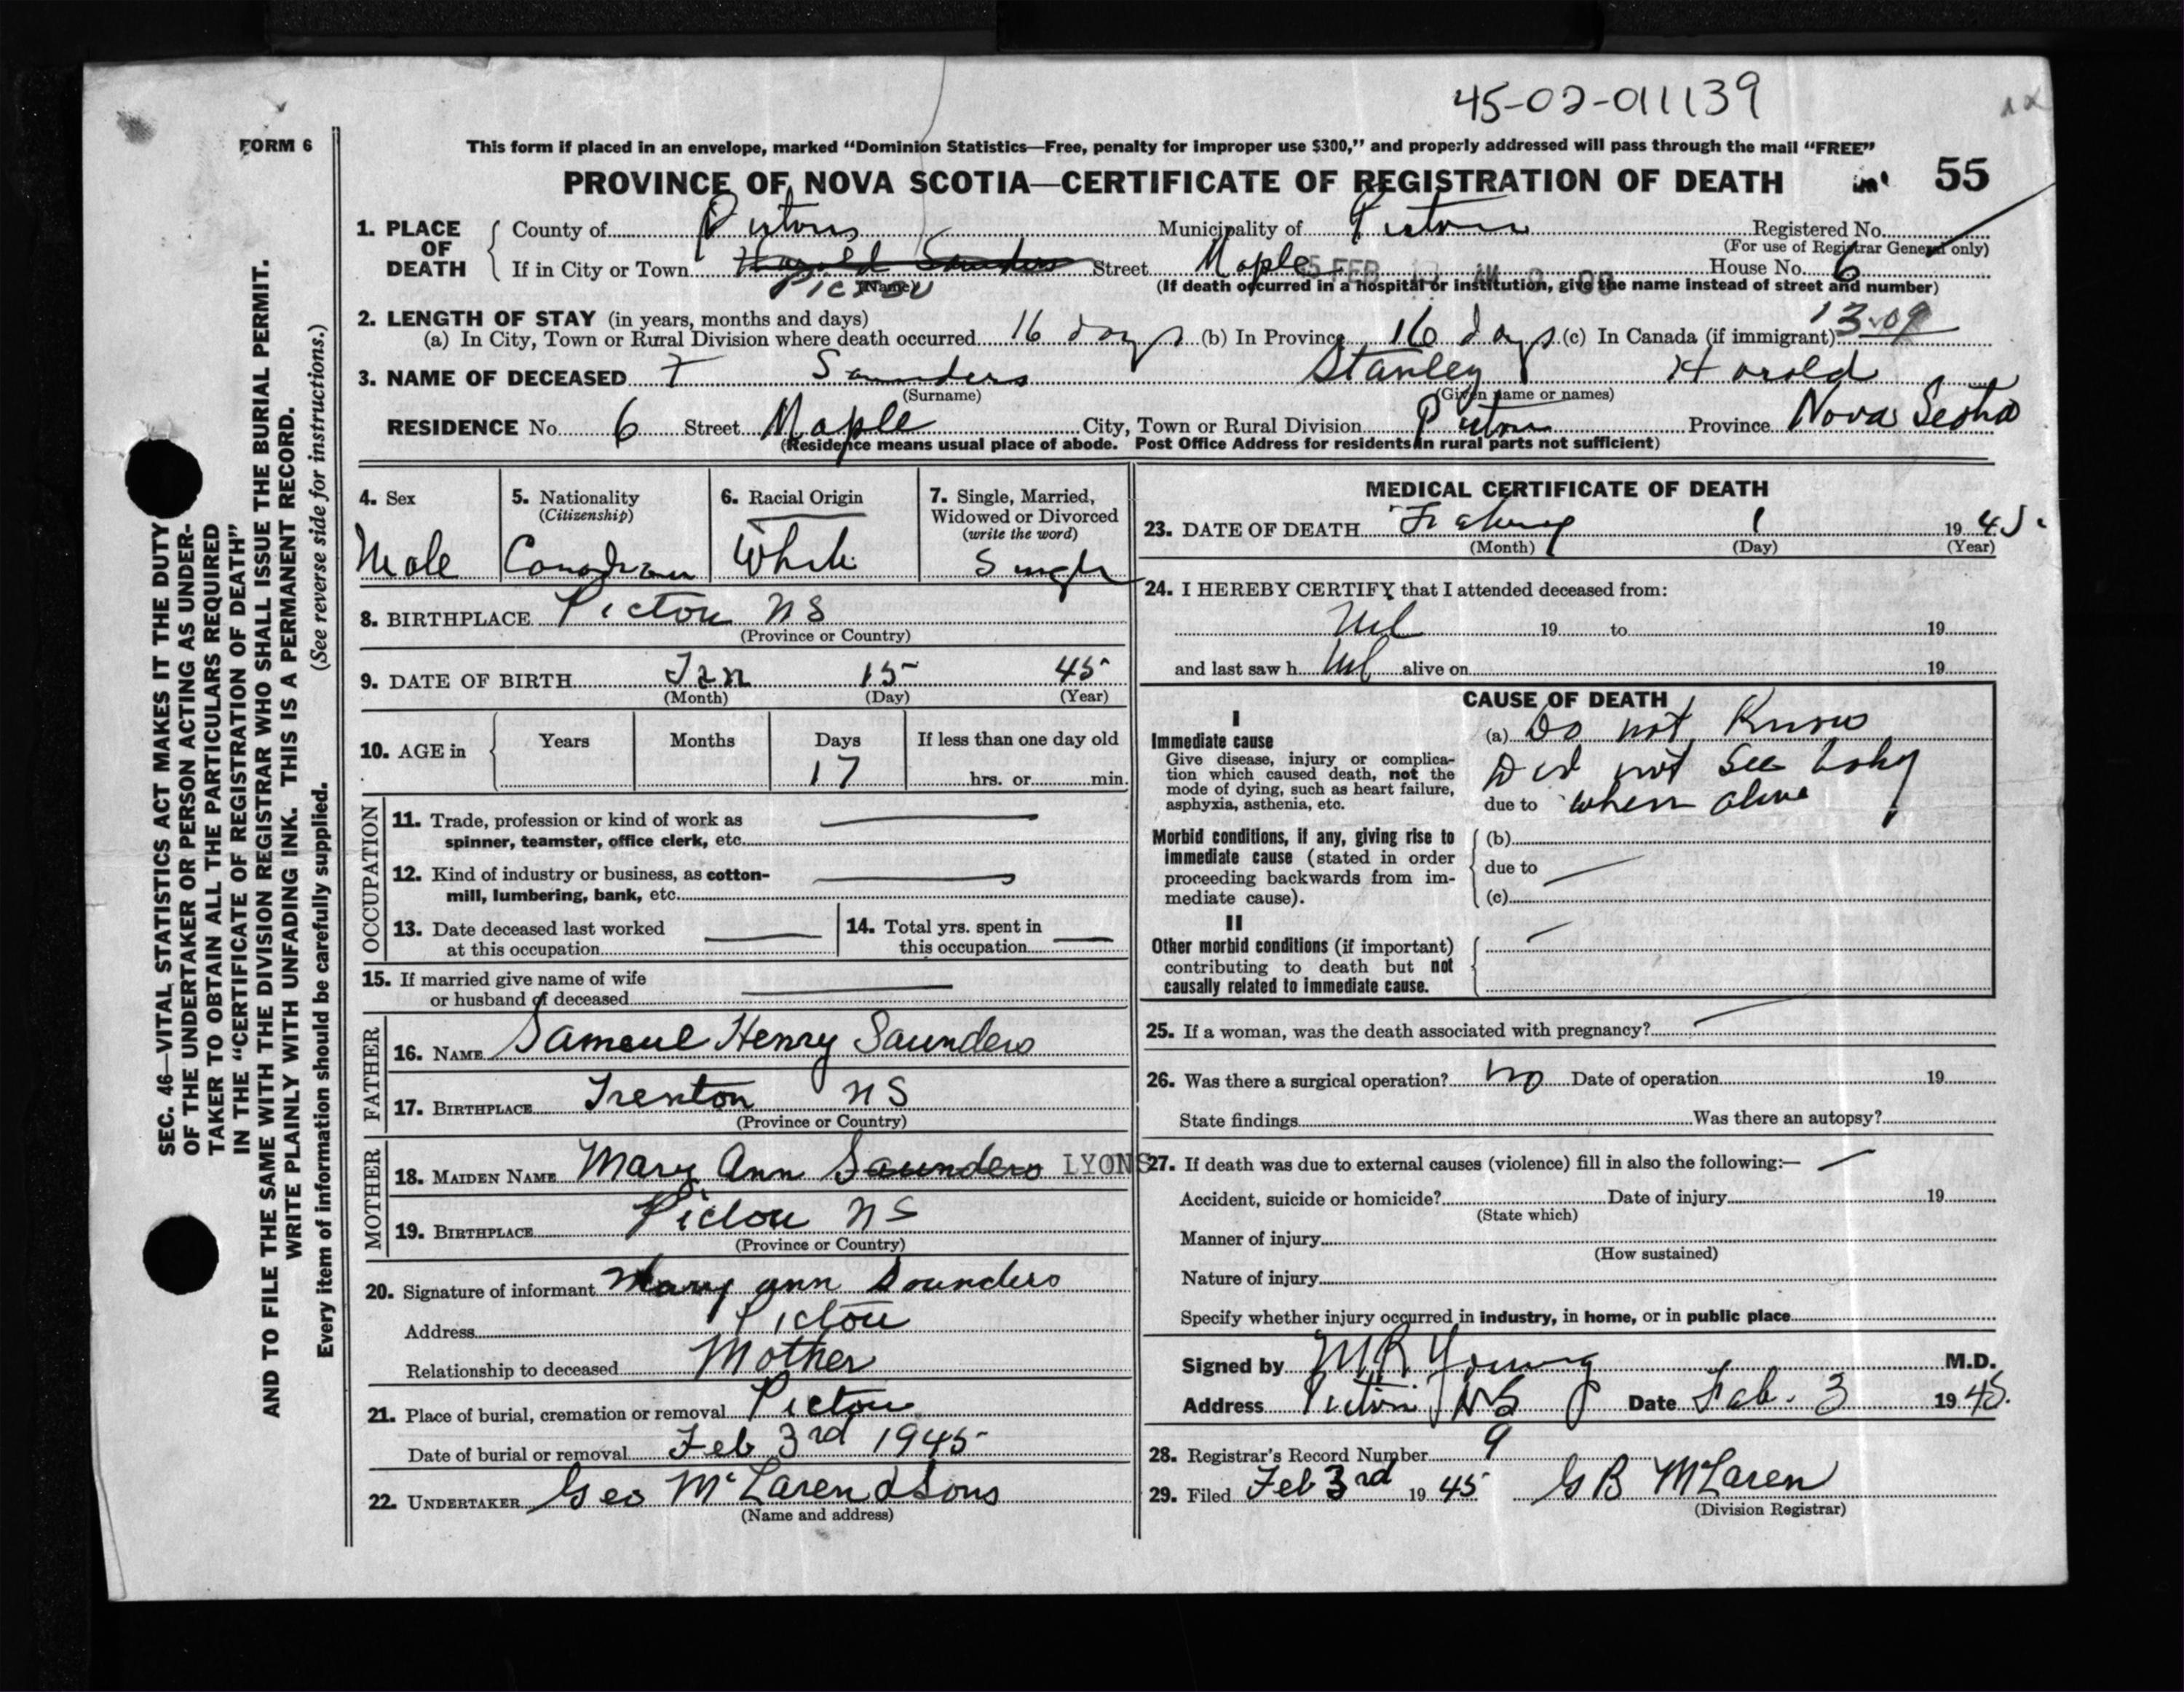 45-02-011139
FORM 6
This form if placed in an envelope, marked “Dominion Statistics—Free, penalty for improper use $300,” and properly addressed will pass through the mail “FREE”
PROVINCE OF NOVA SCOTIA—CERTIFICATE OF REGISTRATION OF DEATH 55
1. PLACE OF DEATH County of Pictou Municipality of Pictou Registered No.
(For use of Registrar General only)
If in City or Town Harold Saunders Street Maple House No. 6
PICTOU (Name) (If death occurred in a hospital or institution, give the name instead of street and number)
2. LENGTH OF STAY (in years, months and days) 13-09
(a) In City, Town or Rural Division where death occurred 16 days (b) In Province 16 days (c) In Canada (if immigrant)
3. NAME OF DECEASED Saunders Stanley Harold
(Surname) (Given name or names)
RESIDENCE No. 6 Street Maple City, Town or Rural Division Pictou Province Nova Scotia
(Residence means usual place of abode. Post Office Address for residents in rural parts not sufficient)
4. Sex
Male
5. Nationality
(Citizenship)
Canadian
6. Racial Origin
White
7. Single, Married,
Widowed or Divorced
(write the word)
Single
8. BIRTHPLACE Pictou NS
(Province or Country)
9. DATE OF BIRTH Jan 15 45
(Month) (Day) (Year)
10. AGE in Years Months Days If less than one day old
17 hrs. or min.
OCCUPATION
11. Trade, profession or kind of work as
spinner, teamster, office clerk, etc.
12. Kind of industry or business, as cotton-
mill, lumbering, bank, etc.
13. Date deceased last worked
at this occupation
14. Total yrs. spent in
this occupation
15. If married give name of wife
or husband of deceased
FATHER
16. NAME Sameul Henry Saunders
17. BIRTHPLACE Trenton NS
(Province or Country)
MOTHER
18. MAIDEN NAME Mary Ann Saunders LYONS
19. BIRTHPLACE Pictou NS
(Province or Country)
20. Signature of informant Mary ann Saunders
Address Pictou
Relationship to deceased Mother
21. Place of burial, cremation or removal Pictou
Date of burial or removal Feb 3rd 1945
22. UNDERTAKER Geo McLaren & Sons
(Name and address)
MEDICAL CERTIFICATE OF DEATH
23. DATE OF DEATH February 1 1945.
(Month) (Day) (Year)
24. I HEREBY CERTIFY that I attended deceased from:
Nil 19 to 19
and last saw h Nil alive on 19
CAUSE OF DEATH
I
Immediate cause
Give disease, injury or complica-
tion which caused death, not the
mode of dying, such as heart failure,
asphyxia, asthenia, etc.
(a) Do not Know
Did not see baby
due to when alive
Morbid conditions, if any, giving rise to
immediate cause (stated in order
proceeding backwards from im-
mediate cause).
(b)
due to
(c)
II
Other morbid conditions (if important)
contributing to death but not
causally related to immediate cause.
25. If a woman, was the death associated with pregnancy?
26. Was there a surgical operation? no Date of operation 19
State findings Was there an autopsy?
27. If death was due to external causes (violence) fill in also the following:—
Accident, suicide or homicide? Date of injury 19
(State which)
Manner of injury
(How sustained)
Nature of injury
Specify whether injury occurred in industry, in home, or in public place
Signed by M R Young M.D.
Address Pictou NS Date Feb. 3 1945.
28. Registrar's Record Number 9
29. Filed Feb 3rd 1945 G B McLaren
(Division Registrar)
SEC. 46—VITAL STATISTICS ACT MAKES IT THE DUTY
OF THE UNDERTAKER OR PERSON ACTING AS UNDER-
TAKER TO OBTAIN ALL THE PARTICULARS REQUIRED
IN THE “CERTIFICATE OF REGISTRATION OF DEATH”
AND TO FILE THE SAME WITH THE DIVISION REGISTRAR WHO SHALL ISSUE THE BURIAL PERMIT.
WRITE PLAINLY WITH UNFADING INK. THIS IS A PERMANENT RECORD.
Every item of information should be carefully supplied. (See reverse side for instructions.)